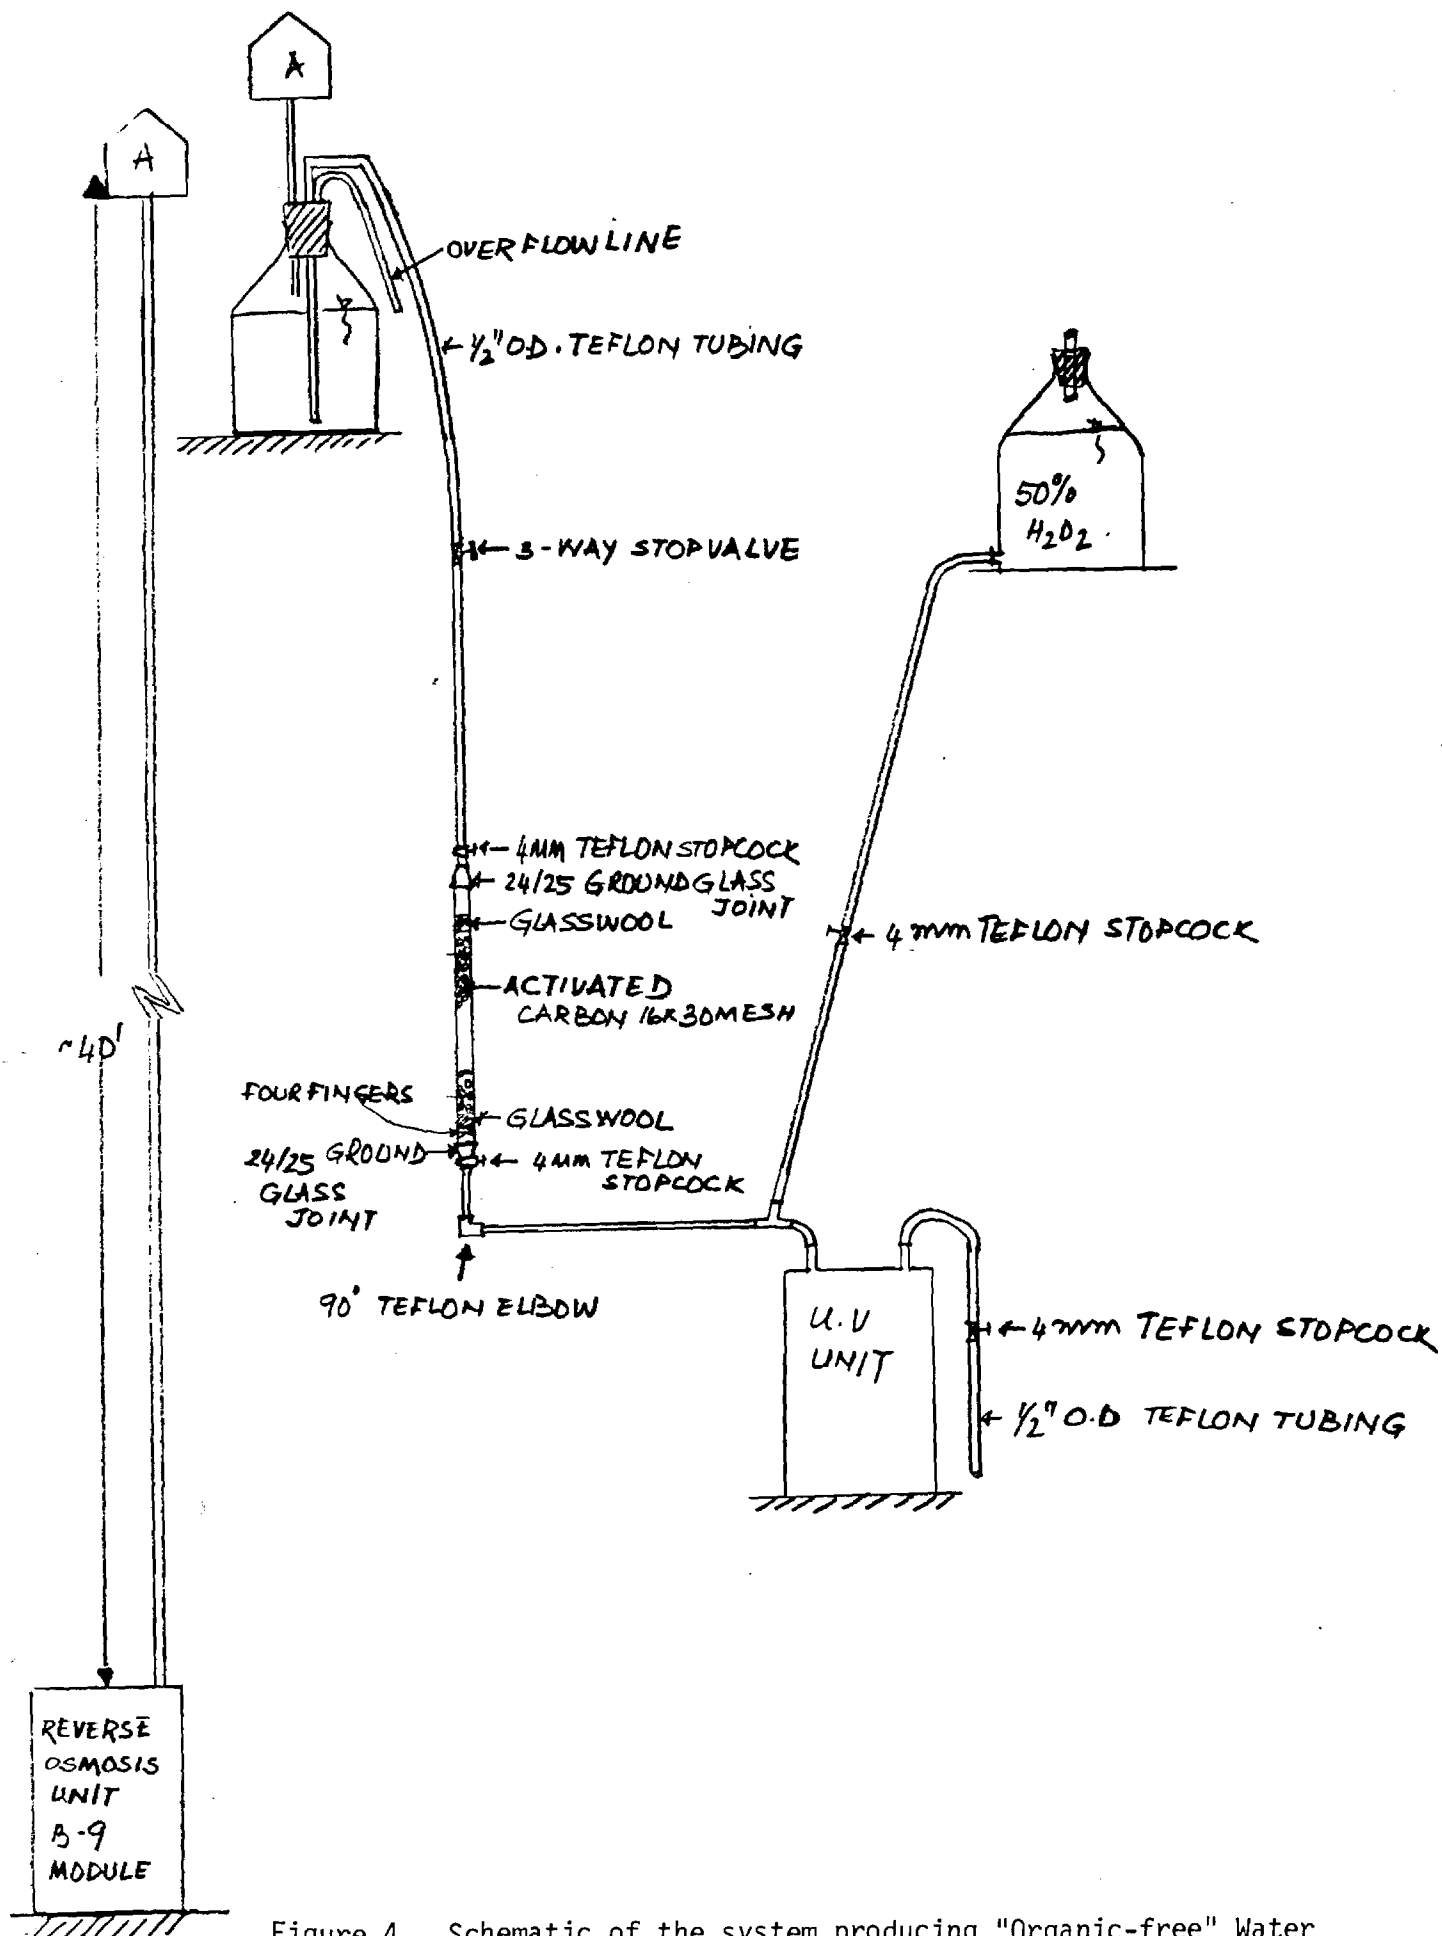 A
A
OVERFLOW LINE
1/2" O.D. TEFLON TUBING
50%
H2O2.
3-WAY STOPVALVE
4MM TEFLON STOPCOCK
24/25 GROUND GLASS
JOINT
GLASSWOOL
4mm TEFLON STOPCOCK
ACTIVATED
CARBON 16X30MESH
~40'
FOUR FINGERS
GLASSWOOL
24/25 GROUND
GLASS
JOINT
4MM TEFLON
STOPCOCK
90° TEFLON ELBOW
U.V
UNIT
4mm TEFLON STOPCOCK
1/2" O.D TEFLON TUBING
REVERSE
OSMOSIS
UNIT
B-9
MODULE
Figure 4. Schematic of the system producing "Organic-free" Water